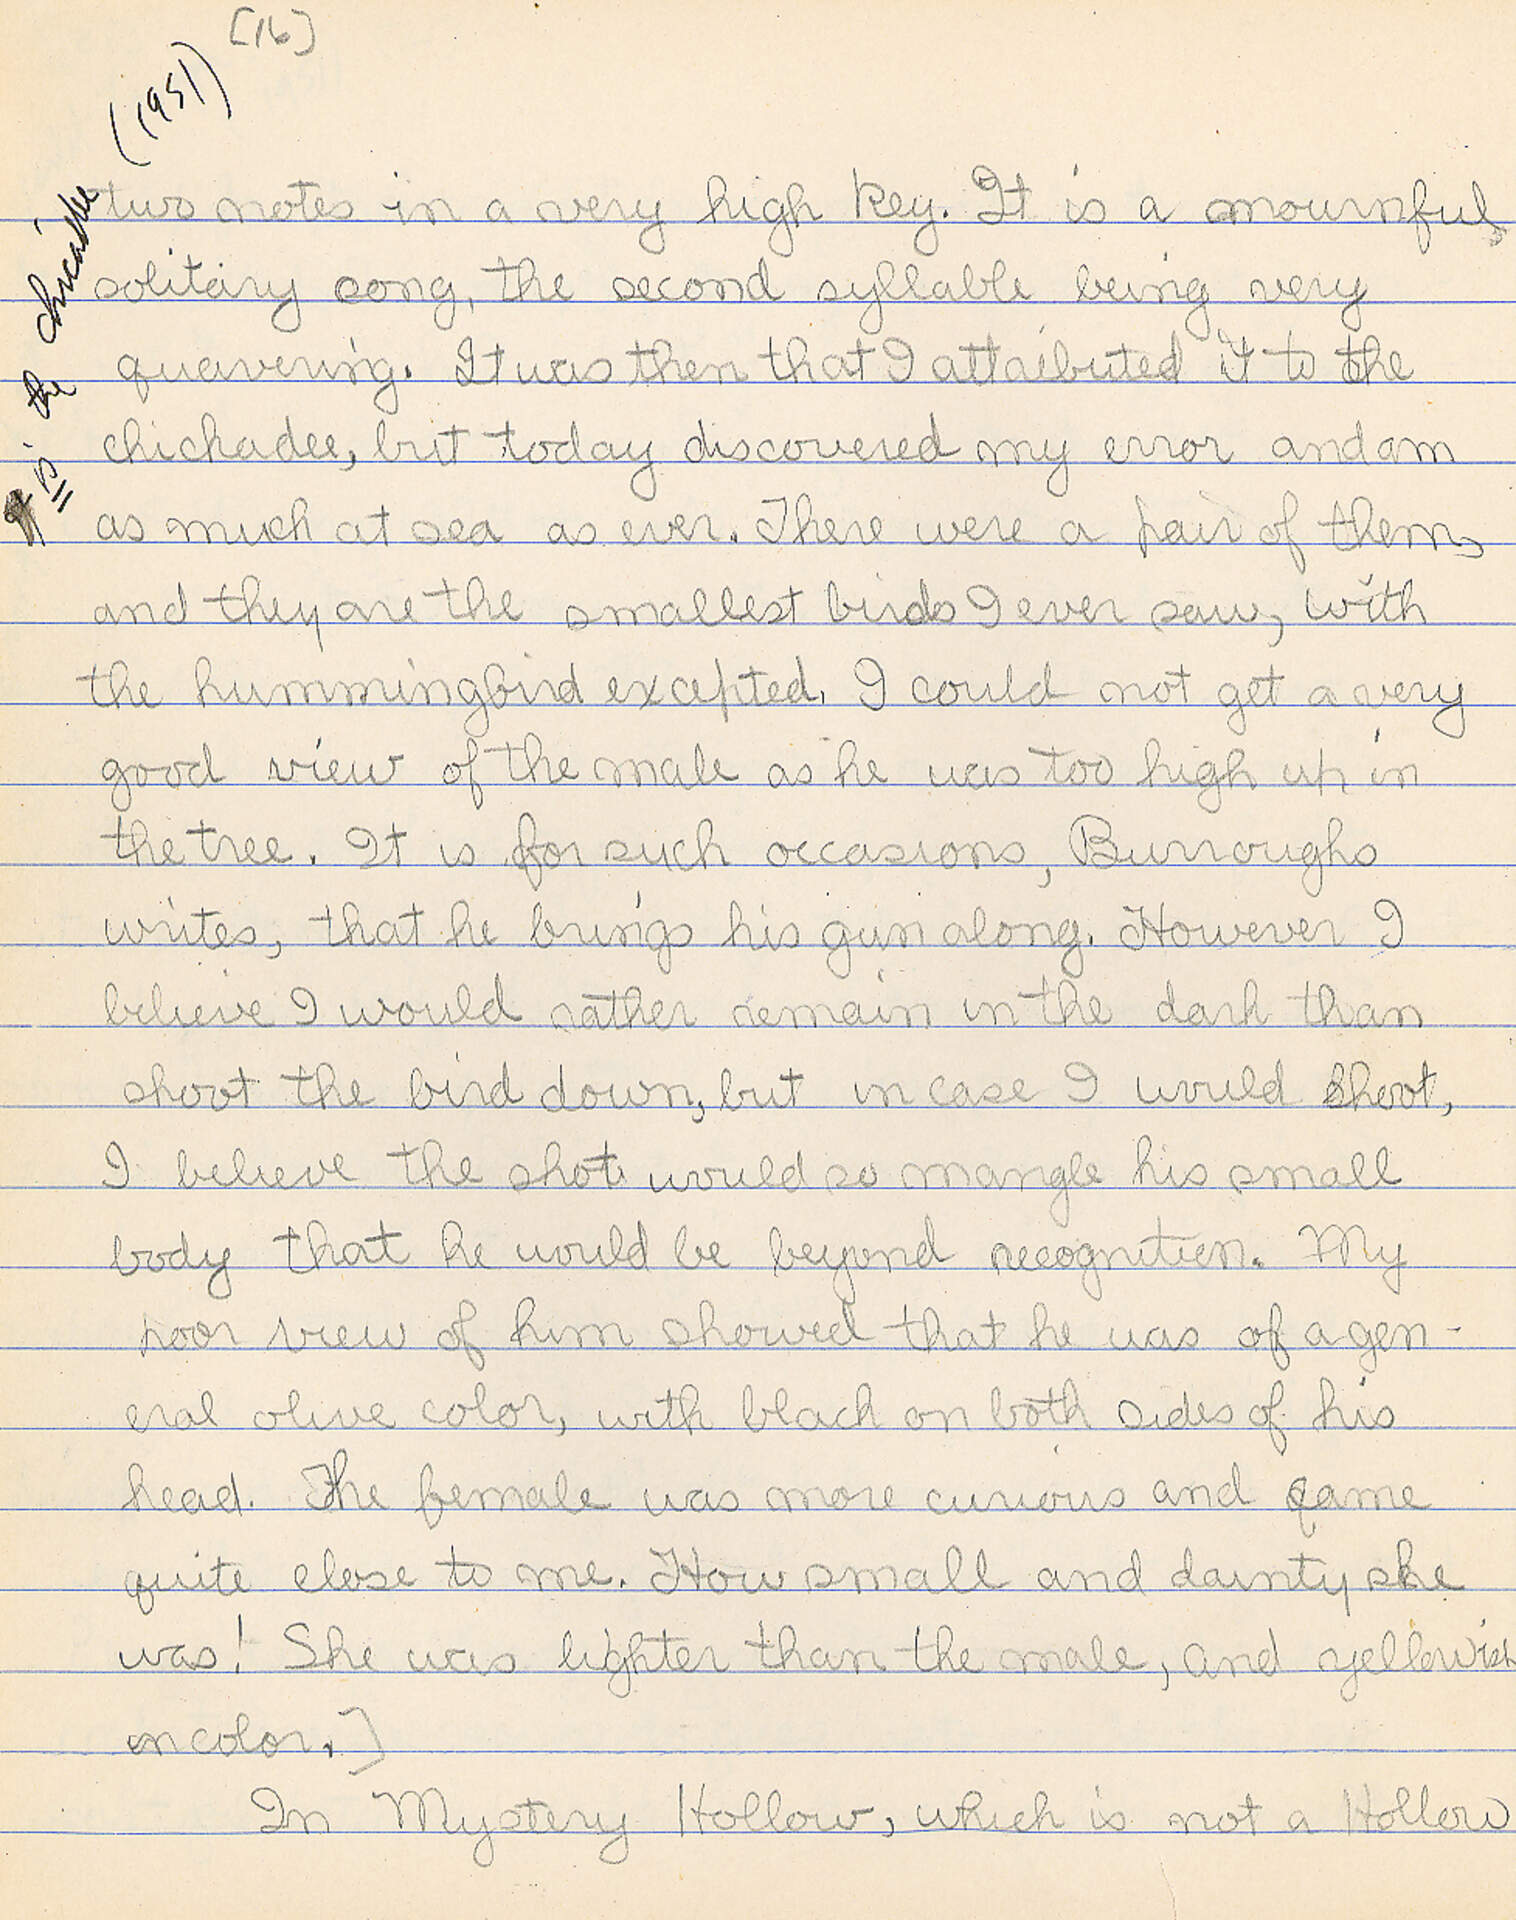 [16]
It is the chicadee (1951)
two notes in a very high key. It is a mournful,
solitary song, the second syllable being very
quavering. It was then that I attributed it to the
chickadee, but today discovered my error and am
as much at sea as ever. There were a pair of them,
and they are the smallest birds I ever saw, with
the hummingbird excepted. I could not get a very
good view of the male as he was too high up in
the tree. It is for such occasions, Burroughs
writes, that he brings his gun along. However I
believe I would rather remain in the dark than
shoot the bird down, but in case I would shoot,
I believe the shot would so mangle his small
body that he would be beyond recognition. My
poor view of him showed that he was of a gen-
eral olive color, with black on both sides of his
head. The female was more curious and came
quite close to me. How small and dainty she
was! She was lighter than the male, and yellowish
in color.]
In Mystery Hollow, which is not a Hollow